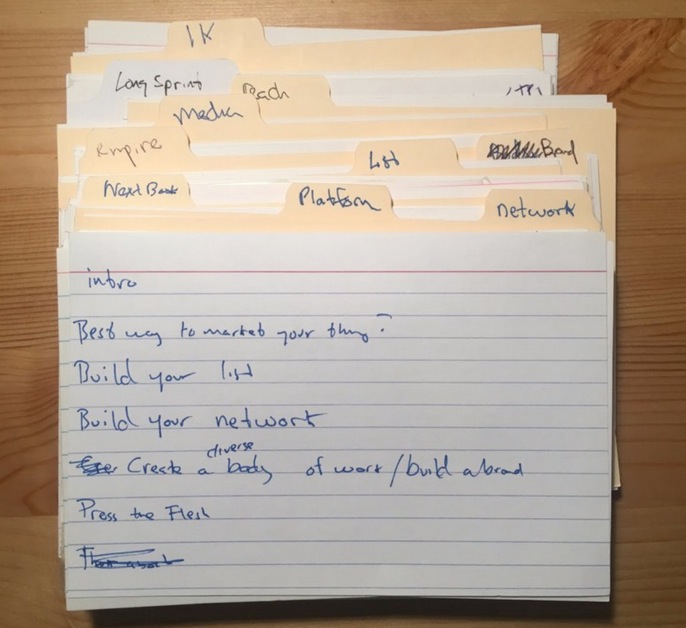 1K
Long Sprint
Reach
Media
Empire
List
Brand
Next Book
Platform
network
intro
Best way to market your thing?
Build your list
Build your network
Create a diverse body of work/build abroad
Press the Flesh